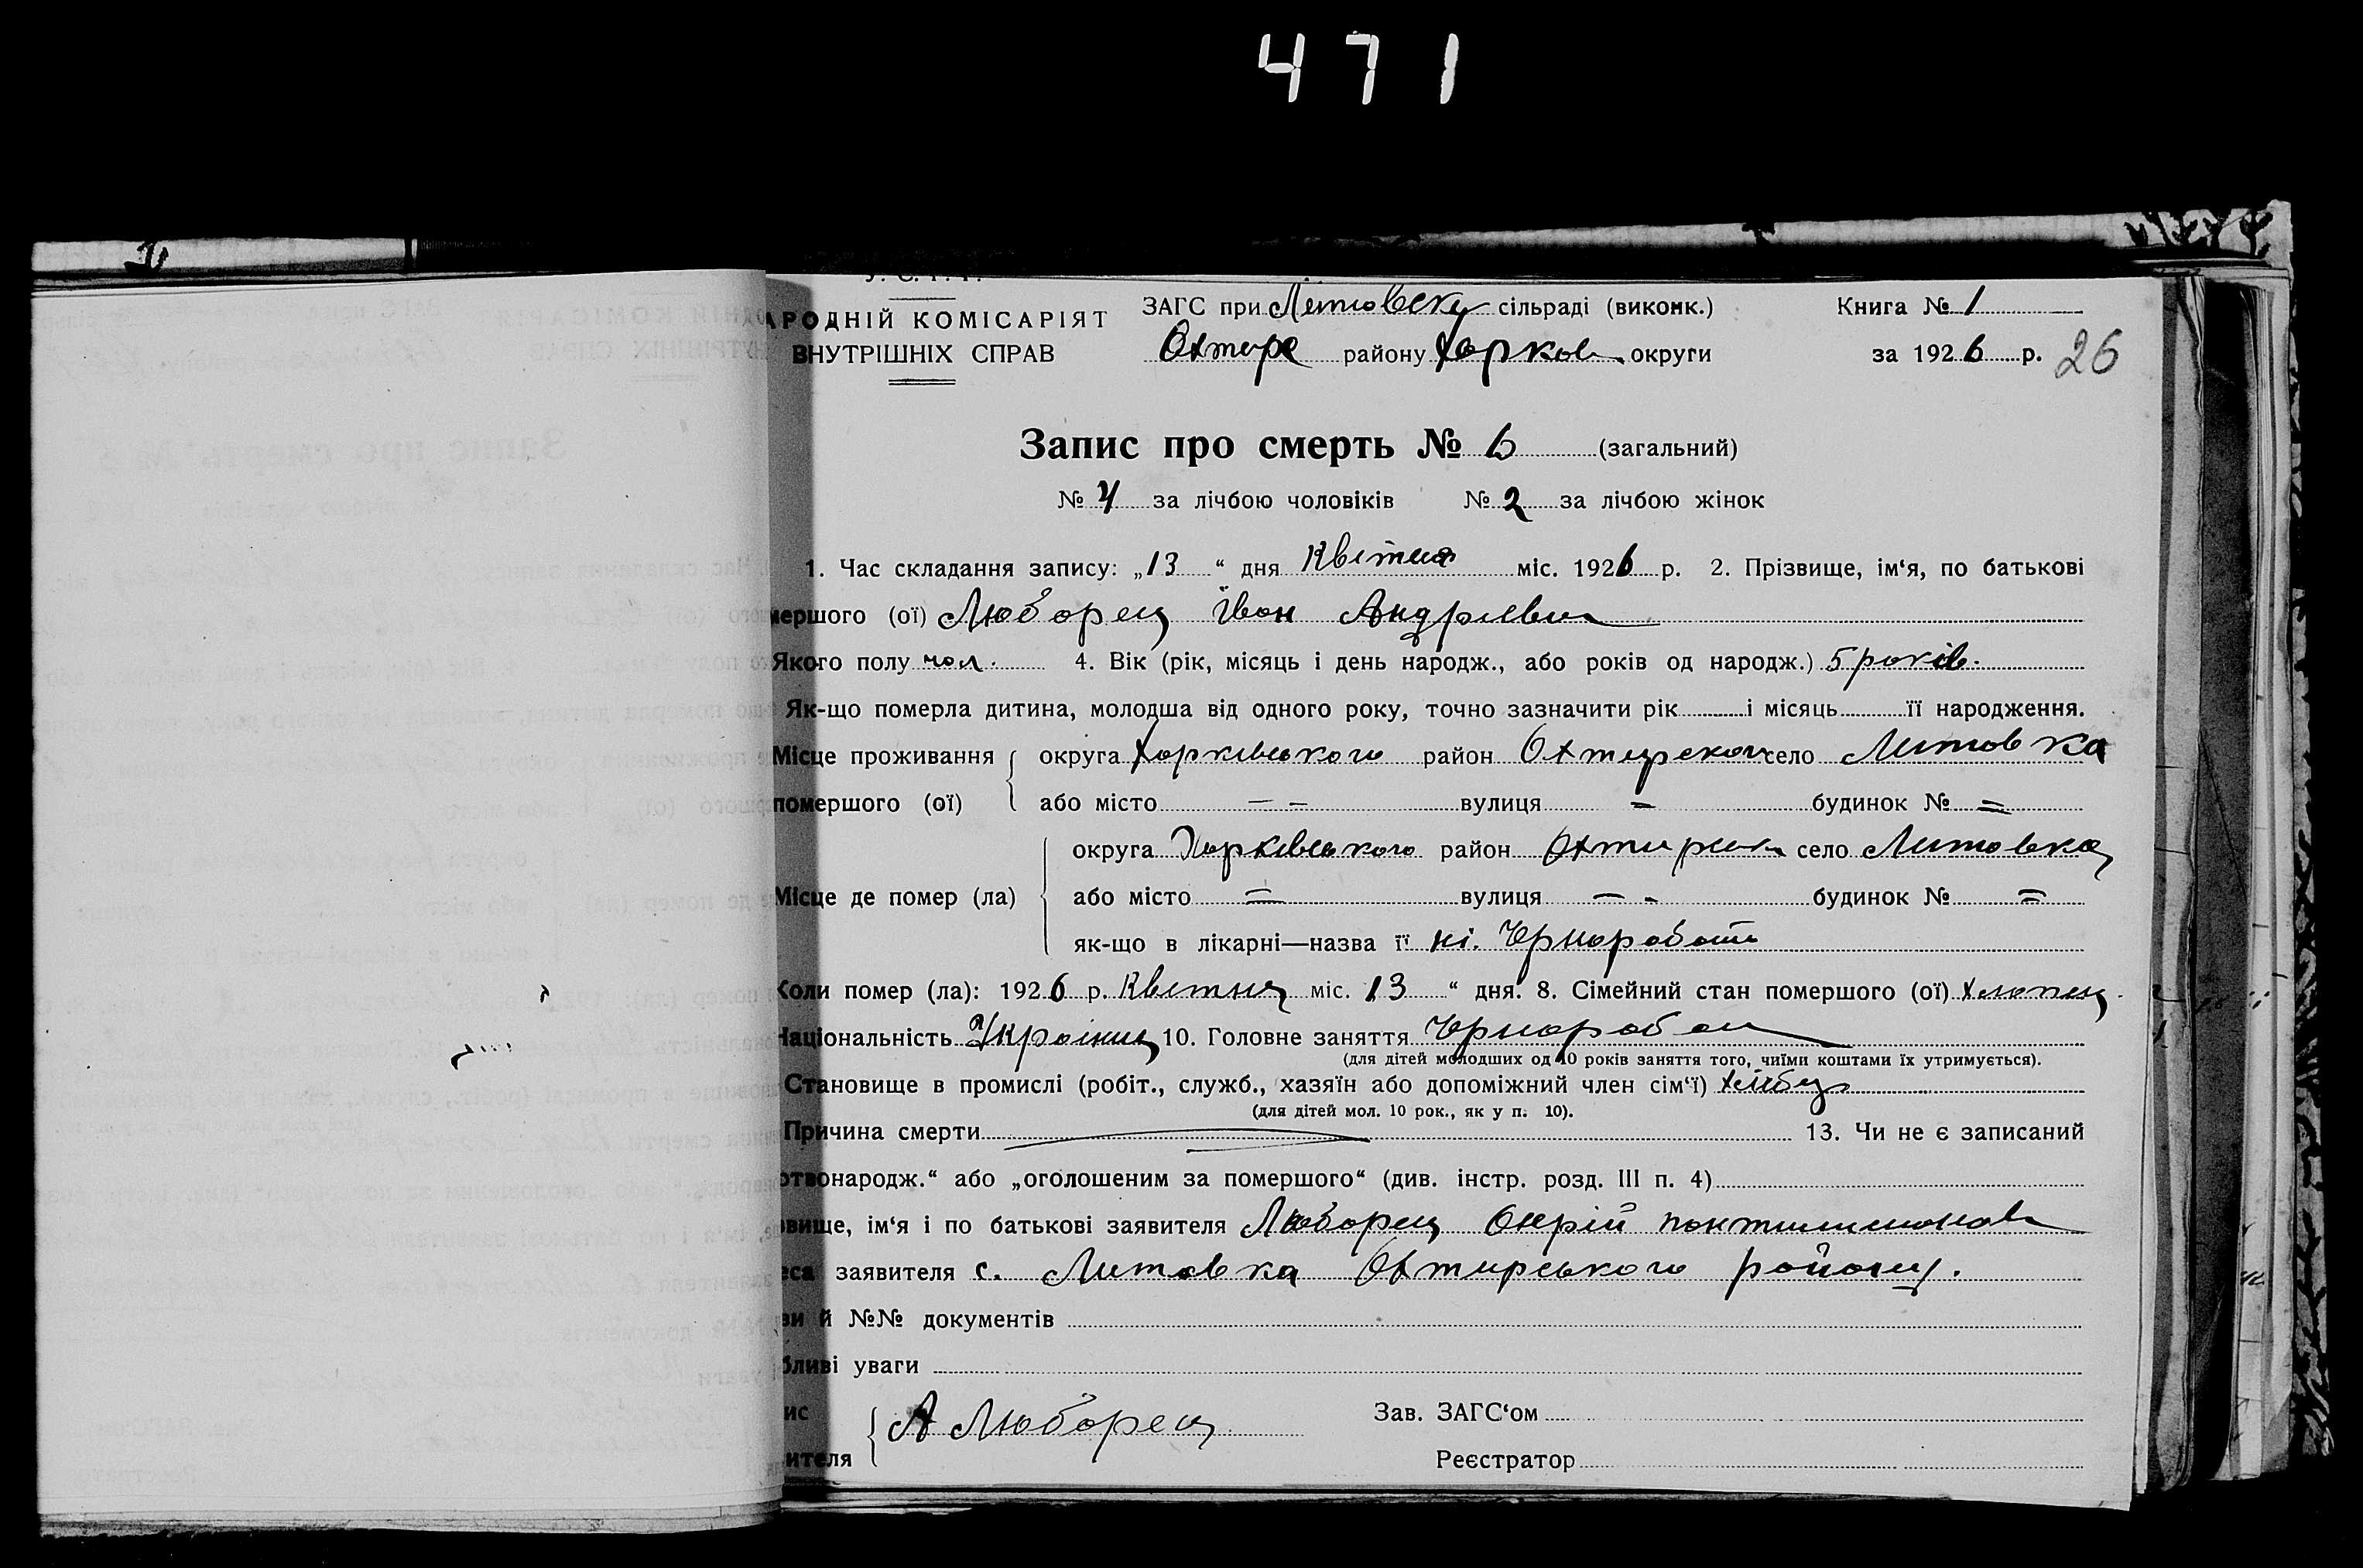 471
У. С. Р. Р.
АРОДНІЙ КОМІСАРІЯТ
ВНУТРІШНІХ СПРАВ
ЗАГС при Литовску сільраді (виконк.)
Охтирс району Харков округи
Книга № 1
за 1926 р. 26
Запис про смерть № 6 (загальний)
№ 4 за лічбою чоловіків № 2 за лічбою жінок
1. Час складання запису: „13“ дня Квітня міс. 1926 р. 2. Прізвище, ім‘я, по батькові
мершого (ої) Люборец Іван Андрієвич
Якого полу чол. 4. Вік (рік, місяць і день народж., або років од народж.) 5 років.
Як-що померла дитина, молодша від одного року, точно зазначити рік і місяць її народження.
Місце проживання округа Харківського район Охтирског село Литовка
помершого (ої) або місто — — вулиця — будинок № =
округа Харківського район Охтирськ село Литовка
Місце де помер (ла) або місто = вулиця — - будинок № =
як-що в лікарні—назва її ні. Чорноробоч
Коли помер (ла): 1926 р. Квітня міс. 13 “ дня. 8. Сімейний стан помершого (ої) хлопец
Національність Україниц 10. Головне заняття Чорнороб
(для дітей молодших од 10 років заняття того, чиїми коштами їх утримується).
Становище в промислі (робіт., служб., хазяїн або допоміжний член сім‘ї)
(для дітей мол. 10 рок., як у п. 10).
Причина смерти 13. Чи не є записаний
отвонародж.“ або „оголошеним за помершого“ (див. інстр. розд. III п. 4)
овище, ім‘я і по батькові заявителя Люборец
еса заявителя с. Литовка Охтирського району.
ви й №№ документів
бливі уваги
ис А Люборец Зав. ЗАГС‘ом
ителя Реєстратор